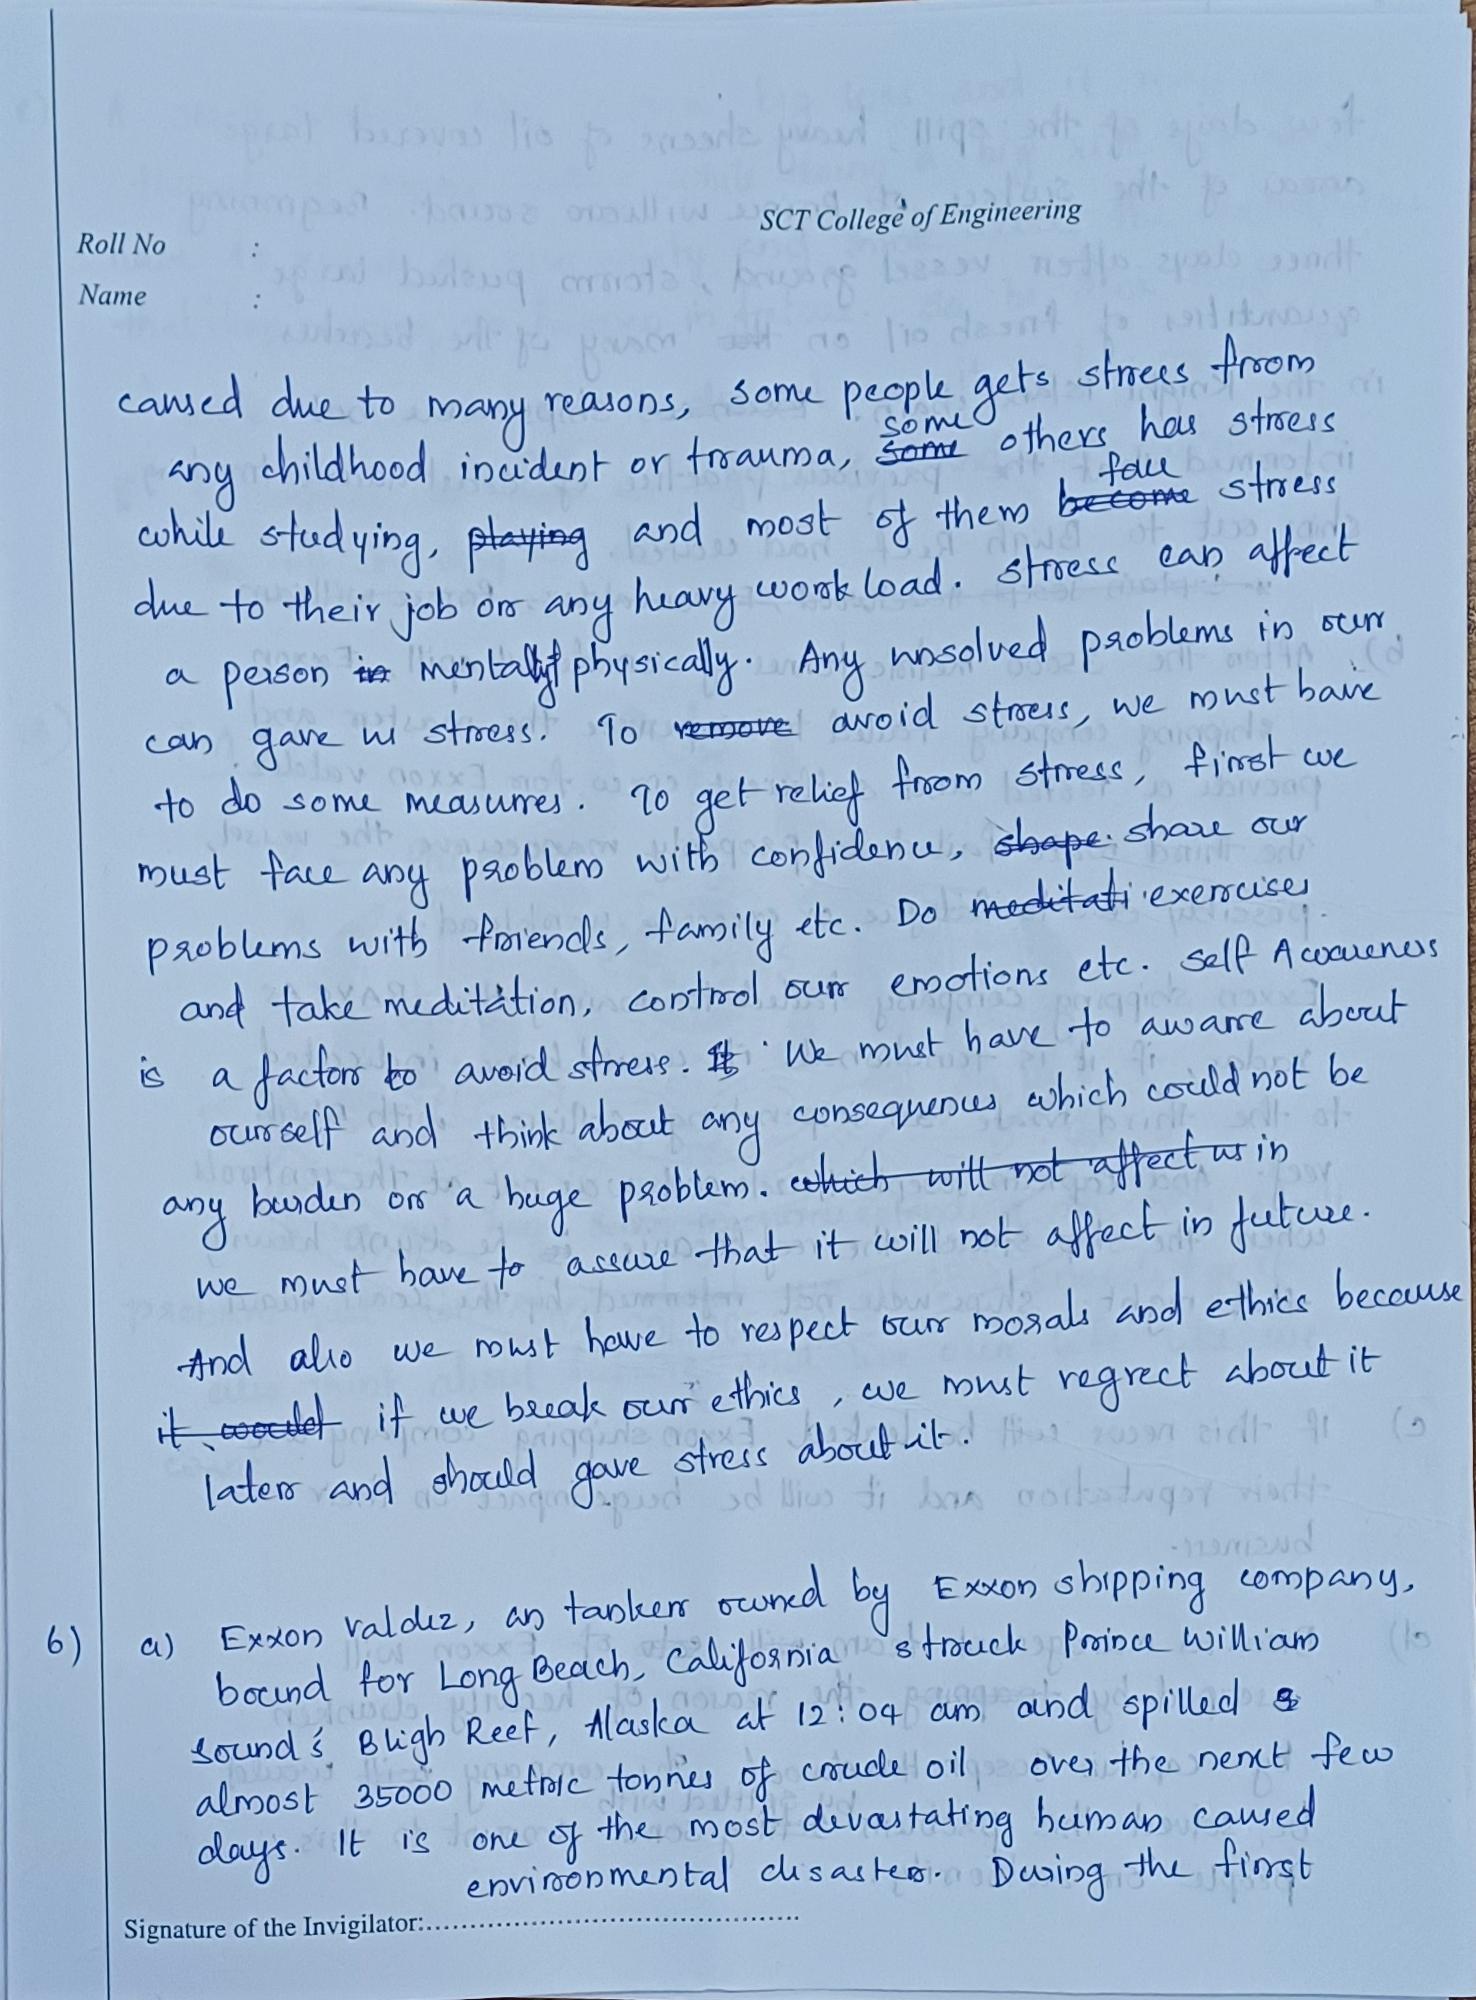 SCT College of Engineering
Roll No :
Name :
caused due to many reasons, some people gets stress from
any childhood incident or trauma, some some others has stress
while studying, playing and most of them become face stress
due to their job or any heavy work load. stress can affect
a person in mentally physically. Any unsolved problems in our
can gave us stress. To remove avoid stress, we must have
to do some measures. To get relief from stress, first we
must face any problem with confidence, shape. share our
problems with friends, family etc. Do meditati exercises
and take meditation, control our emotions etc. Self Awareness
is a factor to avoid stress. It We must have to aware about
ourself and think about any consequences which could not be
any burden or a huge problem. which will not affect us in
we must have to assure that it will not affect in future.
And also we must have to respect our morals and ethics because
it would if we break our ethics, we must regrect about it
later and should gave stress about it.
6) a) Exxon valdez, an tanker owned by Exxon shipping company,
bound for Long Beach, California struck Prince William
sound's Bligh Reef, Alaska at 12:04 am and spilled
almost 35000 metric tonnes of crude oil over the next few
days. It is one of the most devastating human caused
environmental disaster. During the first
Signature of the Invigilator: